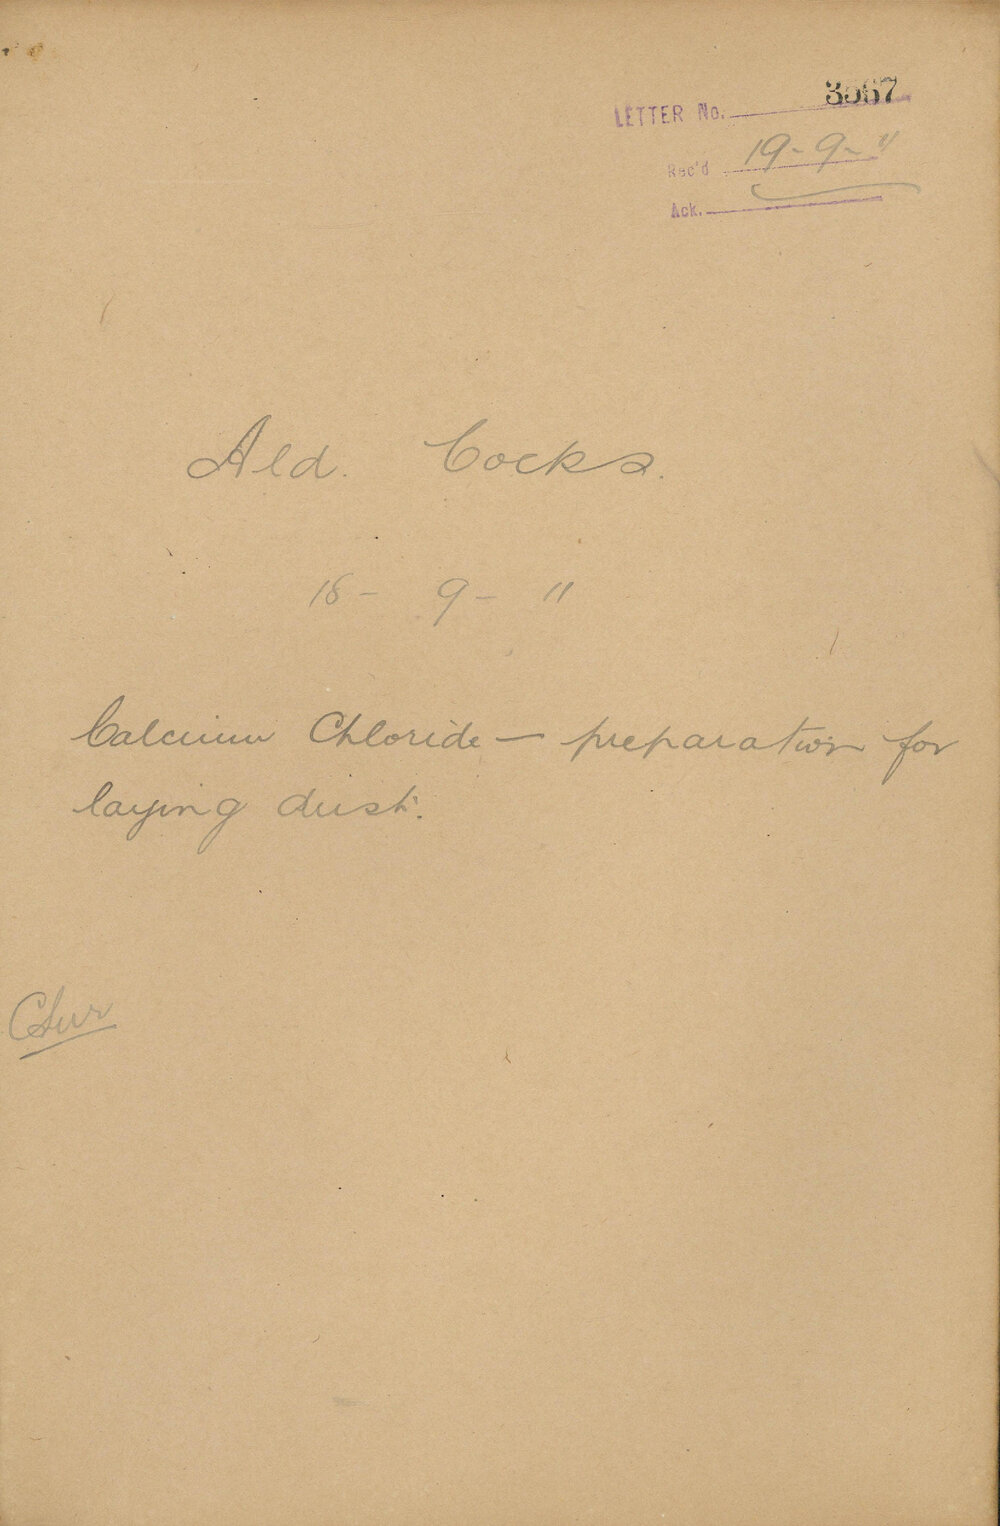 LETTER No. 3567
Rec'd 19-9-11
Ack.
Ald. Cocks.
18-9-11
Calcium Chloride — preparation for
laying dust.